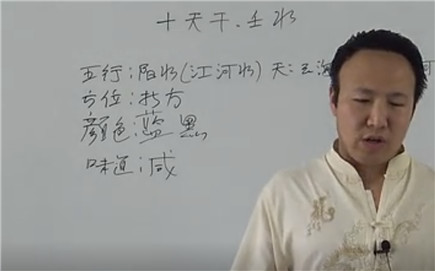 十天干、壬水
五行:阳水(江河水) 天: 河
方位:北方
颜色:蓝 黑
味道:咸